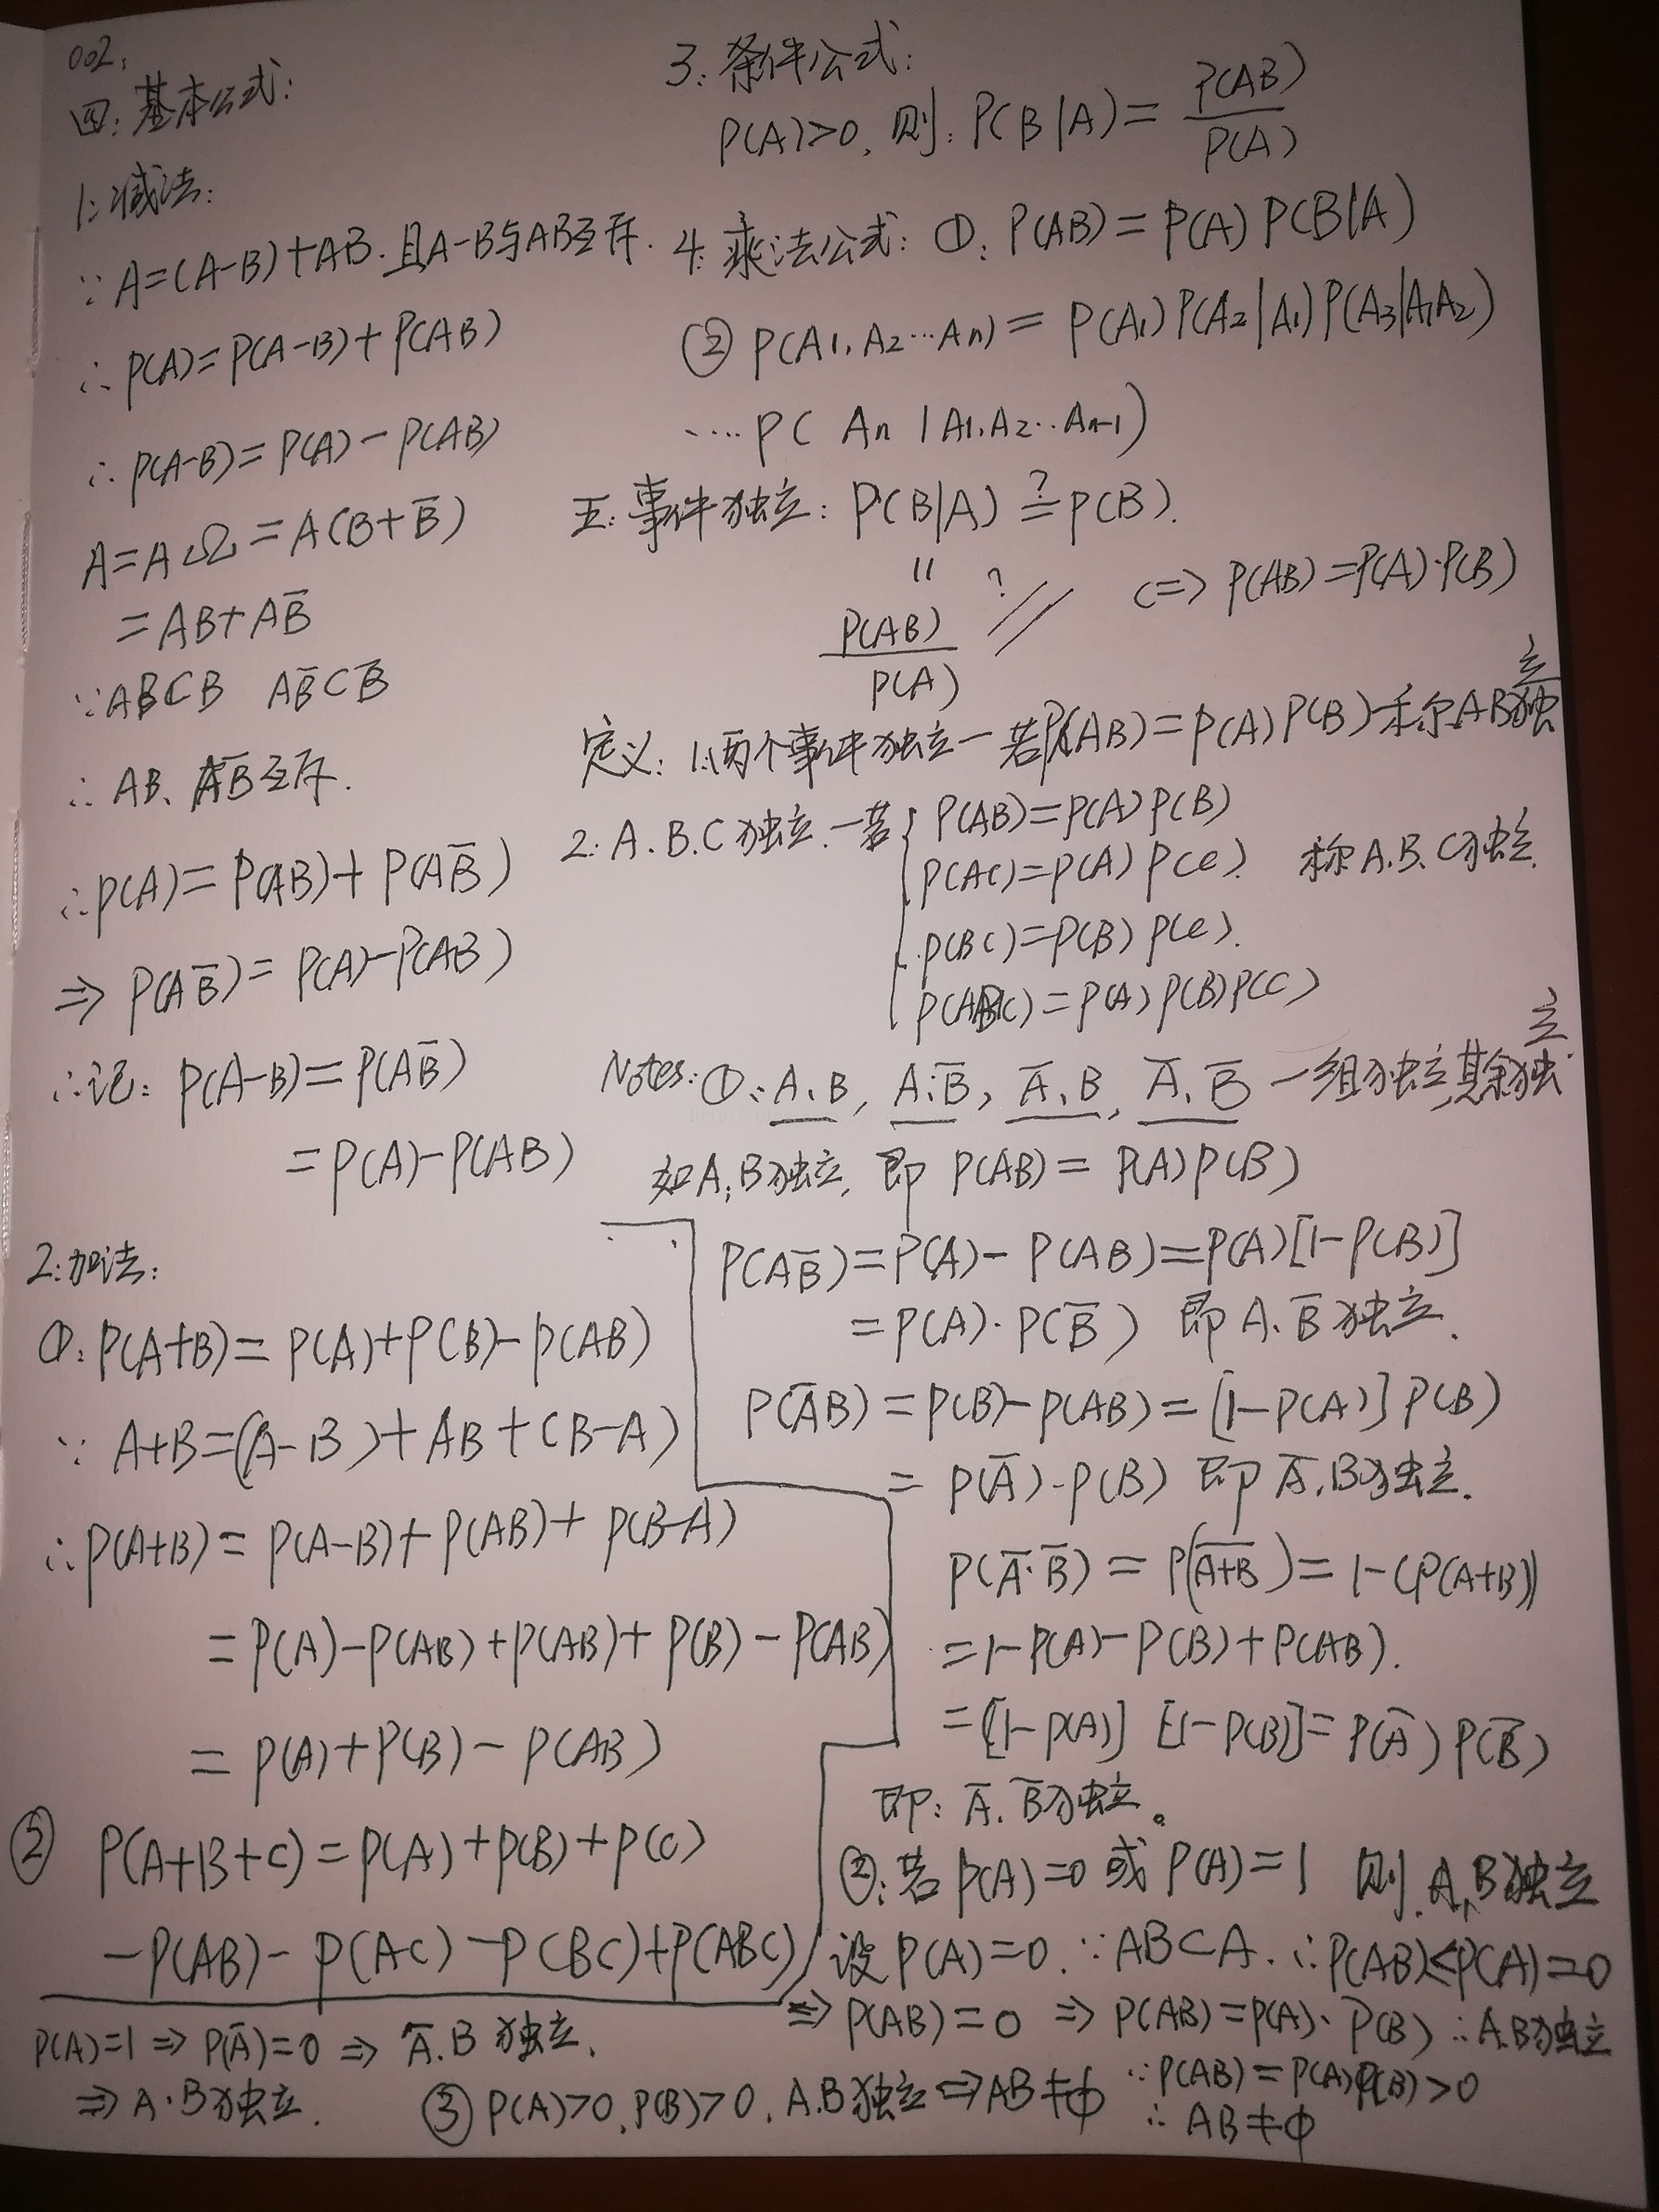 002.
四: 基本公式:
1: 减法:
∵ A=(A-B)+AB. 且A-B与AB互斥.
∴ P(A)=P(A-B)+P(AB)
∴ P(A-B)=P(A)-P(AB)
A=AΩ=A(B+B̅)
=AB+AB̅
∵AB⊂B AB̅⊂B̅
∴ AB、AB̅互斥.
∴P(A)=P(AB)+P(AB̅)
⇒ P(AB̅)=P(A)-P(AB)
∴记: P(A-B)=P(AB̅)
=P(A)-P(AB)
2:加法:
①: P(A+B)=P(A)+P(B)-P(AB)
∵ A+B=(A-B)+AB+(B-A)
∴P(A+B)=P(A-B)+P(AB)+P(B-A)
=P(A)-P(AB)+P(AB)+P(B)-P(AB)
=P(A)+P(B)-P(AB)
② P(A+B+C)=P(A)+P(B)+P(C)
-P(AB)-P(AC)-P(BC)+P(ABC)
3: 条件公式:
P(A)>0, 则: P(B|A)=P(AB)/P(A)
4: 乘法公式: ①: P(AB)=P(A)P(B|A)
② P(A1,A2…An)=P(A1)P(A2|A1)P(A3|A1A2)
…. P(An|A1,A2..An-1)
五: 事件独立: P(B|A) ≟ P(B).
〃 ? // <=> P(AB)=P(A)·P(B)
P(AB)/P(A)
定义: 1:两个事件独立—若P(AB)=P(A)P(B)—称AB独立
2: A.B.C独立—若{ P(AB)=P(A)P(B)
P(AC)=P(A)P(C). 称A.B.C独立.
P(BC)=P(B)P(C).
P(ABC)=P(A)P(B)P(C)
Notes: ①: A、B, A、B̅, A̅、B, A̅、B̅ 一组独立,其余独立.
如A,B独立, 即 P(AB)=P(A)P(B)
P(AB̅)=P(A)-P(AB)=P(A)[1-P(B)]
=P(A)·P(B̅) 即 A、B̅独立.
P(A̅B)=P(B)-P(AB)=[1-P(A)]P(B)
=P(A̅)·P(B) 即 A̅,B独立.
P(A̅·B̅)=P(A̅+̅B̅)=1-(P(A+B))
=1-P(A)-P(B)+P(AB).
=[1-P(A)][1-P(B)]=P(A̅)P(B̅)
即: A̅、B̅独立。
②: 若P(A)=0 或 P(A)=1 则A,B独立
设P(A)=0. ∵AB⊂A. ∴P(AB)≤P(A)=0
⇒ P(AB)=0 ⇒ P(AB)=P(A)·P(B) ∴A.B独立
P(A)=1 ⇒ P(A̅)=0 ⇒ A̅.B独立.
⇒ A·B独立.
③ P(A)>0,P(B)>0, A.B独立⇒AB≠φ ∵P(AB)=P(A)P(B)>0
∴ AB≠φ